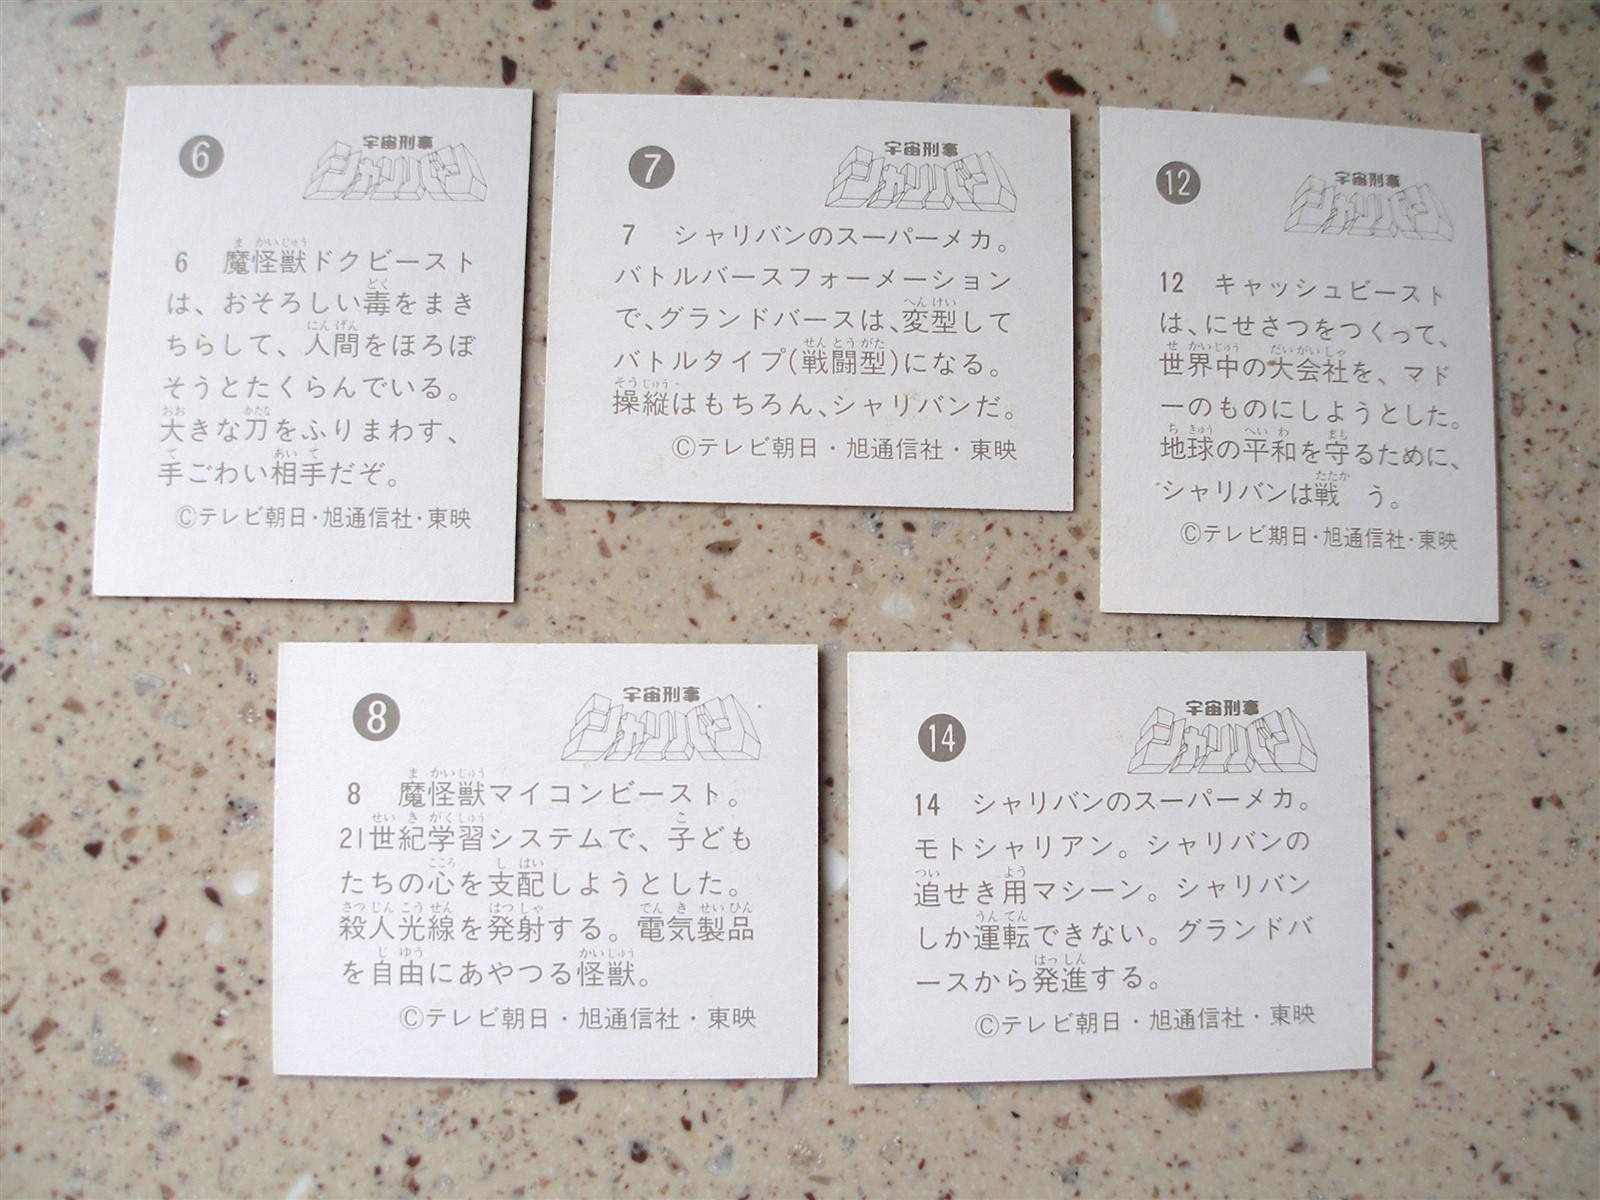 6
宇宙刑事
シャリバン
6 魔怪獣ドクビースト
は、おそろしい毒をまき
ちらして、人間をほろぼ
そうとたくらんでいる。
大きな刀をふりまわす、
手ごわい相手だぞ。
Ⓒテレビ朝日・旭通信社・東映
7
宇宙刑事
シャリバン
7 シャリバンのスーパーメカ。
バトルバースフォーメーション
で、グランドバースは、変型して
バトルタイプ(戦闘型)になる。
操縦はもちろん、シャリバンだ。
Ⓒテレビ朝日・旭通信社・東映
12
宇宙刑事
シャリバン
12 キャッシュビースト
は、にせさつをつくって、
世界中の大会社を、マド
ーのものにしようとした。
地球の平和を守るために、
シャリバンは戦 う。
Ⓒテレビ期日・旭通信社・東映
8
宇宙刑事
シャリバン
8 魔怪獣マイコンビースト。
21世紀学習システムで、子ども
たちの心を支配しようとした。
殺人光線を発射する。電気製品
を自由にあやつる怪獣。
Ⓒテレビ朝日・旭通信社・東映
14
宇宙刑事
シャリバン
14 シャリバンのスーパーメカ。
モトシャリアン。シャリバンの
追せき用マシーン。シャリバン
しか運転できない。グランドバ
ースから発進する。
Ⓒテレビ朝日・旭通信社・東映